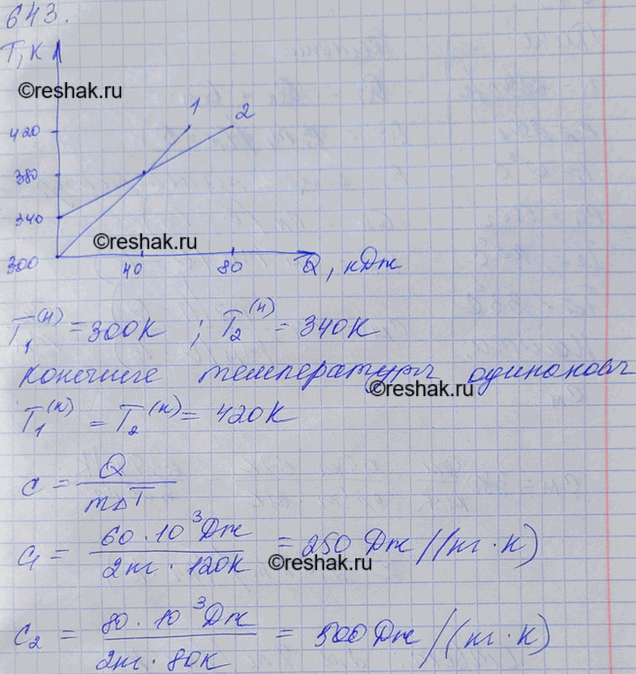 643.
T, K
©reshak.ru
1
2
420
380
340
©reshak.ru
300
40
80
Q, кДж
T₁⁽ᴴ⁾ = 300К ; T₂⁽ᴴ⁾ = 340К
конечные температуры одинаковы
©reshak.ru
T₁⁽ᴷ⁾ = T₂⁽ᴷ⁾ = 420К
c = Q / mΔT
c₁ = 60 · 10³ Дж / 2кг · 120К = 250 Дж/(кг · К)
©reshak.ru
c₂ = 80 · 10³ Дж / 2кг · 80К = 500 Дж/(кг · К)